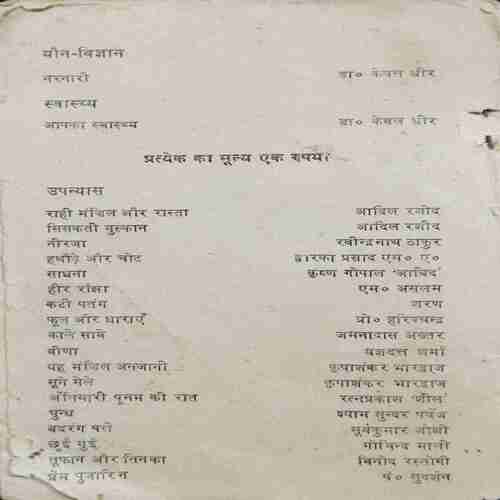 यौन-विज्ञान
नरनारी डा० केवल धीर
स्वास्थ्य
आपका स्वास्थ्य डा० केवल धीर
प्रत्येक का मूल्य एक रुपया
उपन्यास
राही मंज़िल और रास्ता आदिल रशीद
सिसकती मुस्कान आदिल रशीद
नीरजा रवीन्द्रनाथ ठाकुर
हथौड़े और चोट द्वारका प्रसाद एम० ए०
साधना कृष्ण गोपाल 'आबिद'
हीर रांझा एम० असलम
कटी पतंग शरण
फूल और धाराएँ प्रो० हरिश्चन्द्र
काले साये जमनादास अख्तर
वीणा यज्ञदत्त शर्मा
यह मंज़िल अनजानी कृपाशंकर भारद्वाज
सूने मेले कृपाशंकर भारद्वाज
अँधियारी पूनम की रात रत्नप्रकाश 'शील'
धुन्ध श्याम सुन्दर पर्वेज़
बदरंग सूर्यकुमार जोशी
छुई मुई गोविन्द माली
तूफान और तिनका विनोद रस्तोगी
प्रेम पुजारिन पं० सुदर्शन